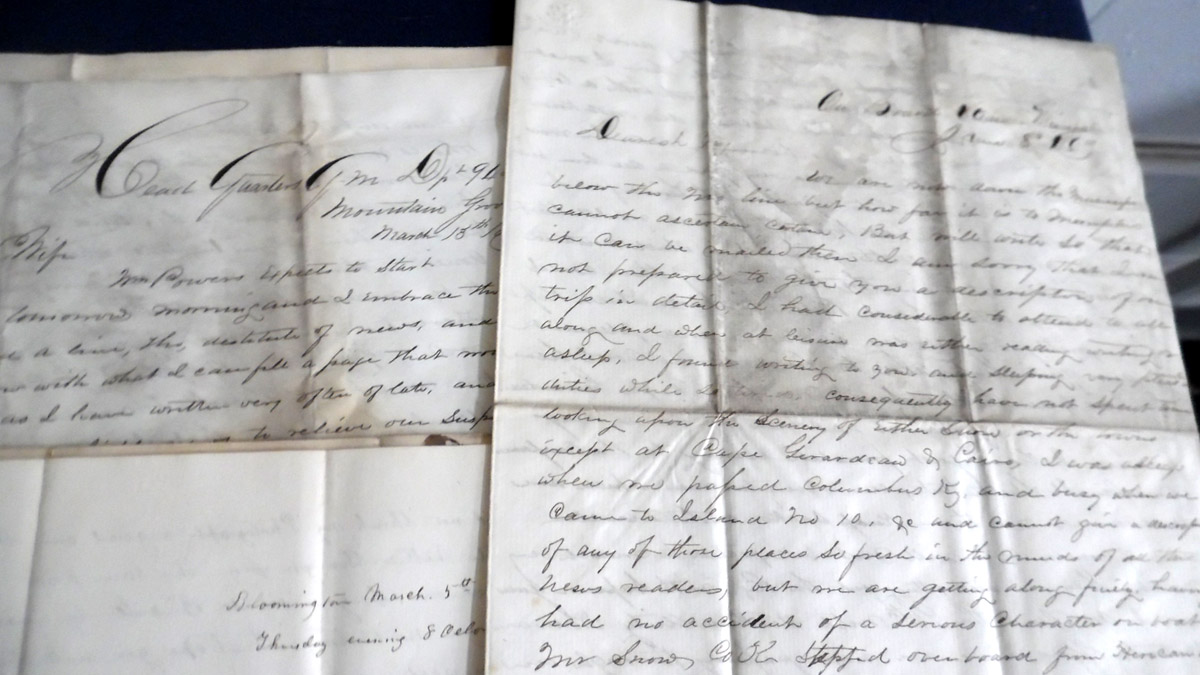 Head Quarters Q M Dpt 94
Mountain Gro
March 15th
Wife
Mr Bowers expects to start
tomorrow morning and I embrace the
a line, tho, destitute of news, and
with what I can fill a page that
as I have written very often of late, and
to relieve our Susp
Bloomington March. 5th
Thursday evening 8 Oclo
On Board
Dearest
We are now down the Mississippi
below the line but how far it is to Memphis
cannot ascertain certain, But will write so that
it can be mailed then I am sorry that I am
not prepared to give you a description of
trip in detail, I had considerable to attend to all
along and when at leisure was either reading writing or
asleep, I found writing to you and sleeping my
duties while consequently have not spent
looking upon the Scenery of either Shore or the
except at Cape Girardeau & Cairo, I was asleep
when we passed Columbus Ky, and busy when we
Came to Island No 10, &c and cannot give a descrip
of any of those places so fresh in the minds of all the
news readers, but we are getting along finely have
had no accident of a Serious Character on boat
Mr Snow, Co K Stepped overboard from